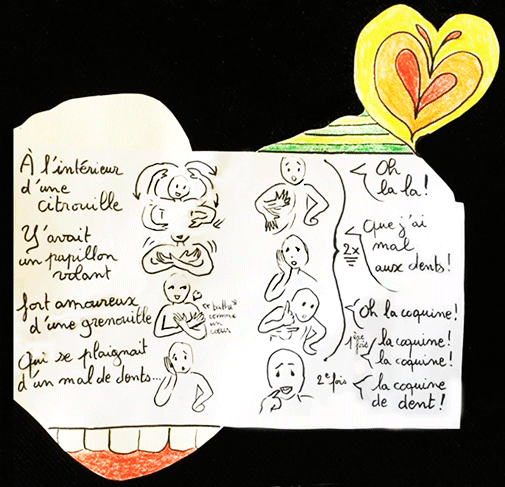 À l'intérieur
d'une
citrouille
Y'avait
un papillon
volant
fort amoureux
d'une grenouille
Qui se plaignait
d'un mal de dents...
comme
un
cœur
Oh
la la!
2x
Que j'ai
mal
aux dents!
Oh la coquine!
1ère
fois
la coquine!
la coquine!
2e fois
la coquine
de dent!